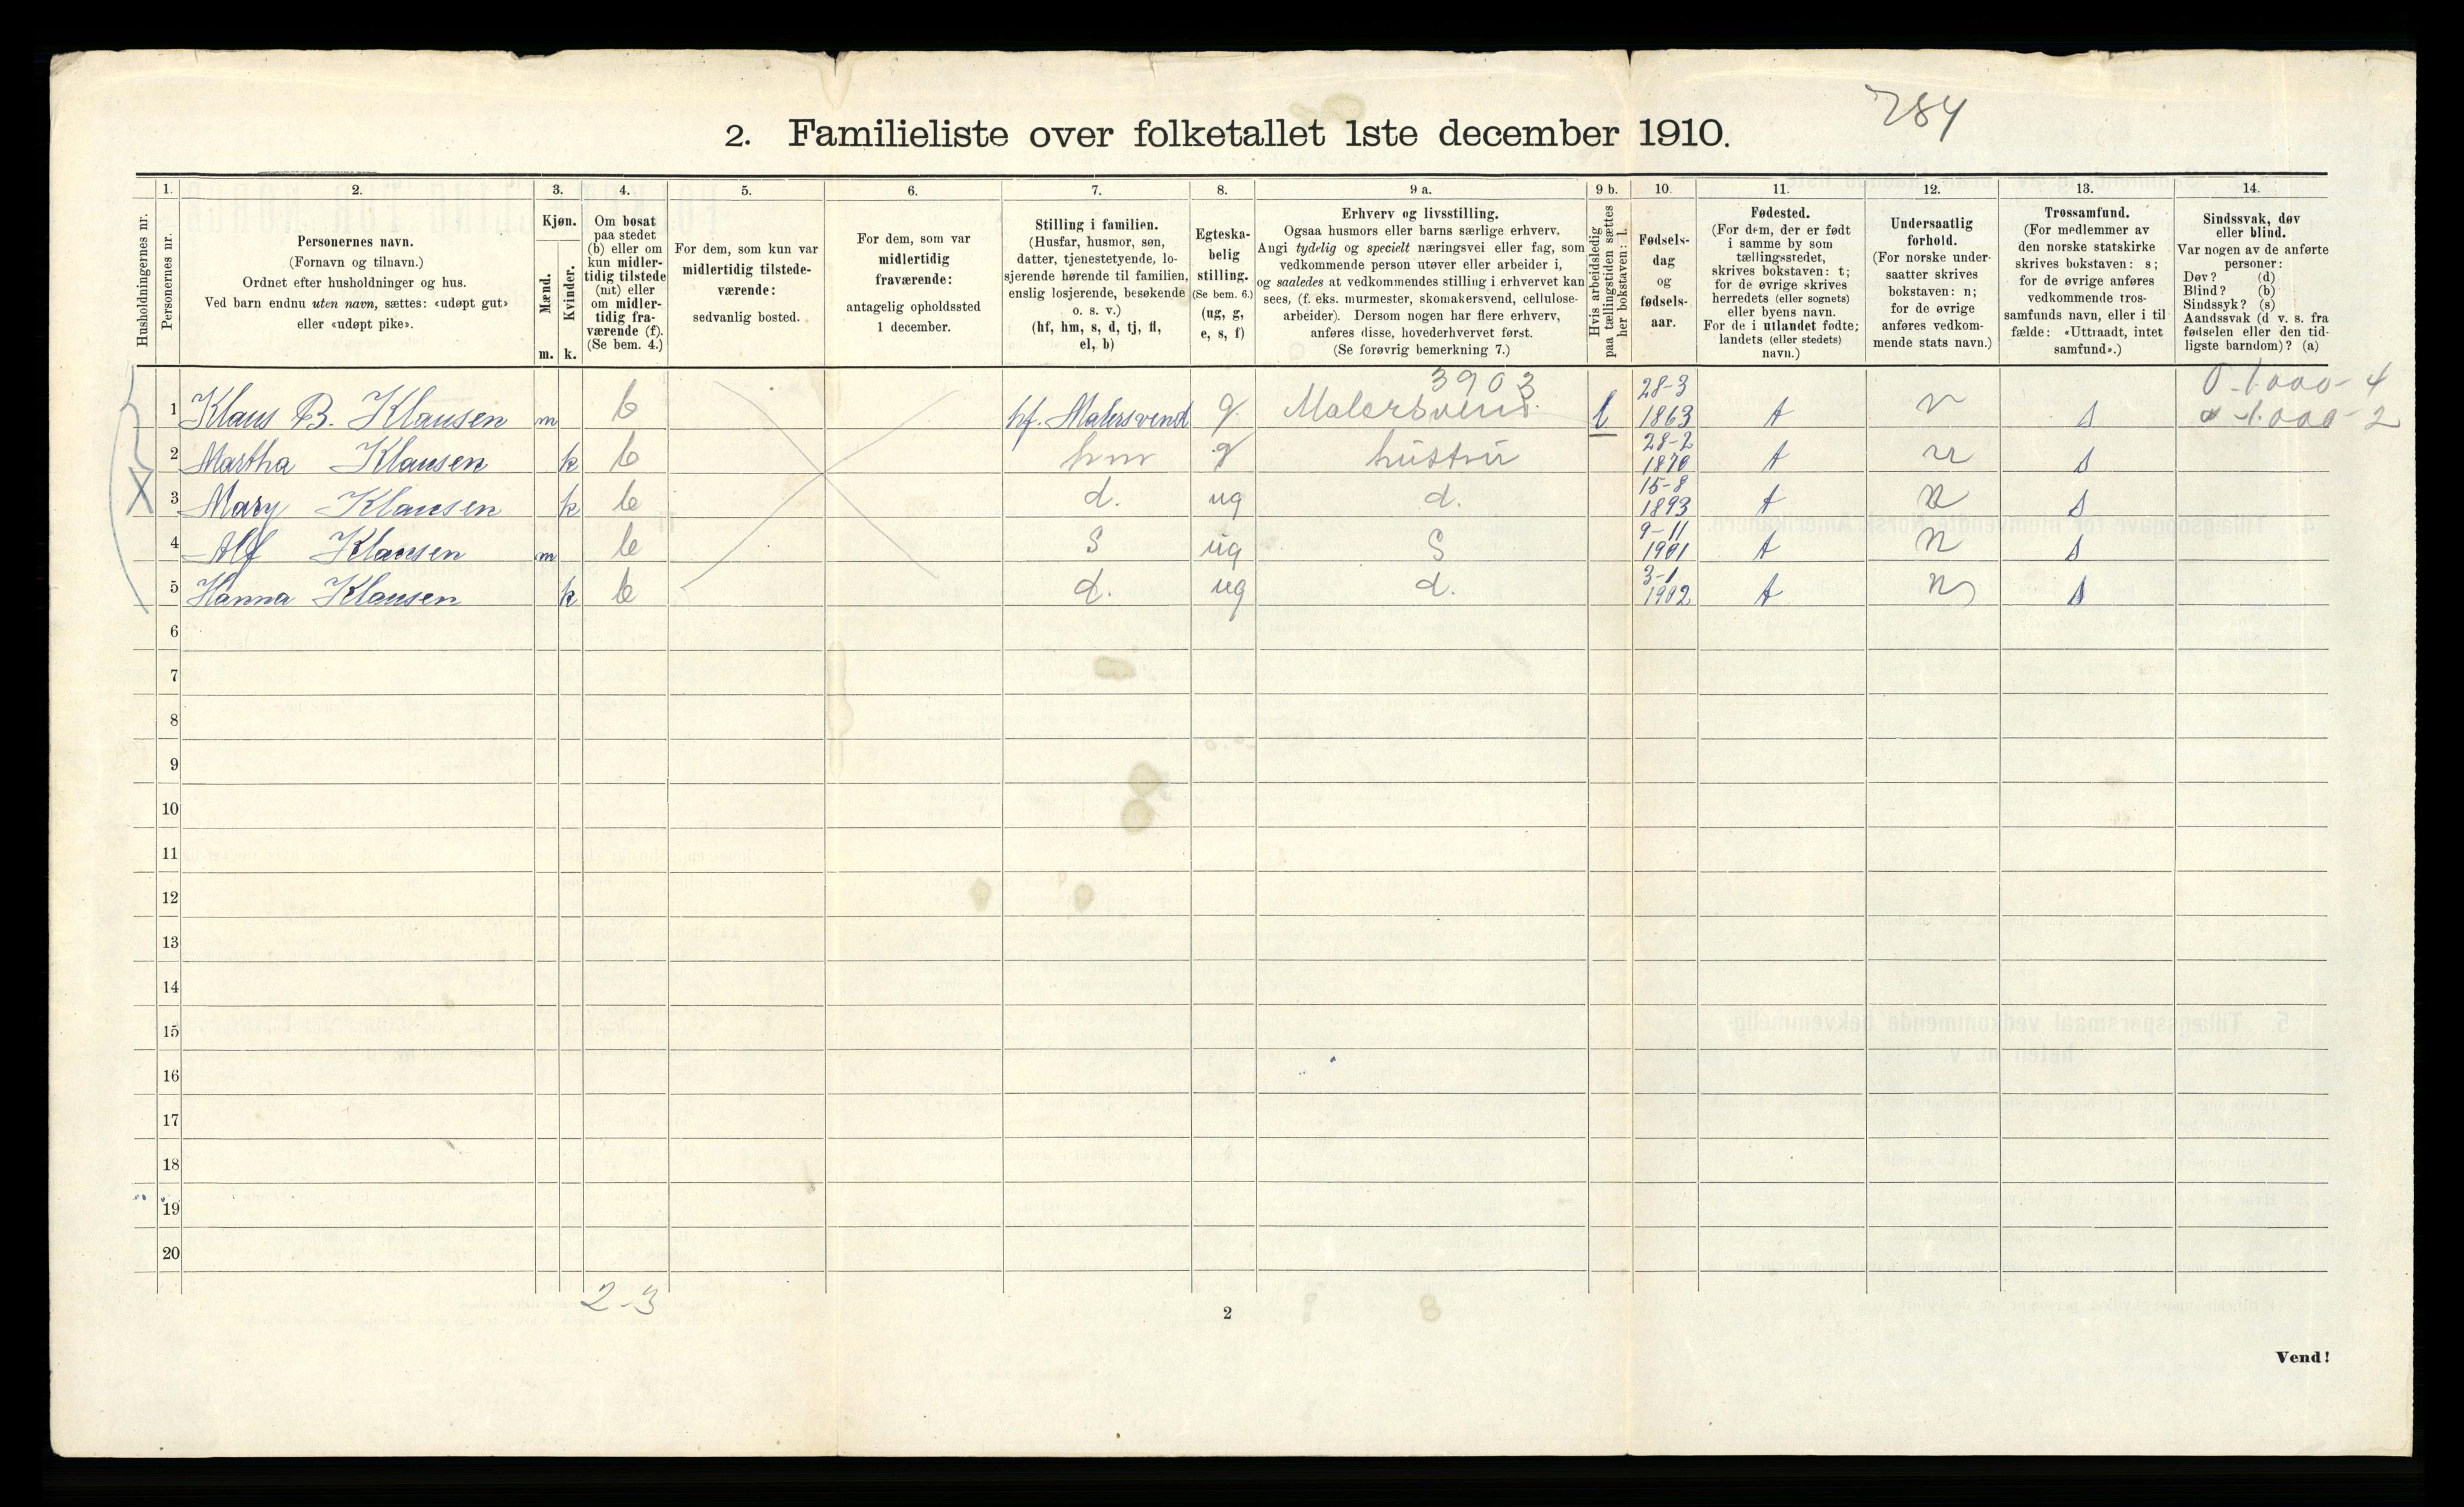 284
2. Familieliste over folketallet 1ste december 1910.
Husholdningernes nr.
1.
Personernes nr.
2.
Personernes navn.
(Fornavn og tilnavn.)
Ordnet efter husholdninger og hus.
Ved barn endnu uten navn, sættes: «udøpt gut»
eller «udøpt pike».
3.
Kjøn.
Mænd.
m.
Kvinder.
k.
4.
Om bosat
paa stedet
(b) eller om
kun midler-
tidig tilstede
(mt) eller
om midler-
tidig fra-
værende (f).
(Se bem. 4.)
5.
For dem, som kun var
midlertidig tilstede-
værende:
sedvanlig bosted.
6.
For dem, som var
midlertidig
fraværende:
antagelig opholdssted
1 december.
7.
Stilling i familien.
(Husfar, husmor, søn,
datter, tjenestetyende, lo-
sjerende hørende til familien,
enslig losjerende, besøkende
o. s. v.)
(hf, hm, s, d, tj, fl,
el, b)
8.
Egteska-
belig
stilling.
(Se bem. 6.)
(ug, g,
e, s, f)
9 a.
Erhverv og livsstilling.
Ogsaa husmors eller barns særlige erhverv.
Angi tydelig og specielt næringsvei eller fag, som
vedkommende person utøver eller arbeider i,
og saaledes at vedkommendes stilling i erhvervet kan
sees, (f. eks. murmester, skomakersvend, cellulose-
arbeider). Dersom nogen har flere erhverv,
anføres disse, hovederhvervet først.
(Se forøvrig bemerkning 7.)
9 b.
Hvis arbeidsledig
paa tællingstiden sættes
her bokstaven: l.
10.
Fødsels-
dag
og
fødsels-
aar.
11.
Fødested.
(For dem, der er født
i samme by som
tællingsstedet,
skrives bokstaven: t;
for de øvrige skrives
herredets (eller sognets)
eller byens navn.
For de i utlandet fødte;
landets (eller stedets)
navn.)
12.
Undersaatlig
forhold.
(For norske under-
saatter skrives
bokstaven: n;
for de øvrige
anføres vedkom-
mende stats navn.)
13.
Trossamfund.
(For medlemmer av
den norske statskirke
skrives bokstaven: s;
for de øvrige anføres
vedkommende tros-
samfunds navn, eller i til-
fælde: «Uttraadt, intet
samfund».)
14.
Sindssvak, døv
eller blind.
Var nogen av de anførte
personer:
Døv? (d)
Blind? (b)
Sindssyk? (s)
Aandssvak (d v. s. fra
fødselen eller den tid-
ligste barndom)? (a)
3903
0-1.000-4
0-1.000-2
X
1 Klaus B. Klausen m b hf. Malersvend g. Malersvend. l 28-3 1863 t n s
2 Martha Klausen k b hm g hustru 28-2 1870 t n s
3 Mary Klausen k b d. ug d. 15-8 1893 t n s
4 Alf Klausen m b S ug S 9-11 1901 t n s
5 Hanna Klausen k b d. ug d. 3-1 1902 t n s
6
7
8
9
10
11
12
13
14
15
16
17
18
19
20
2-3
2
Vend!